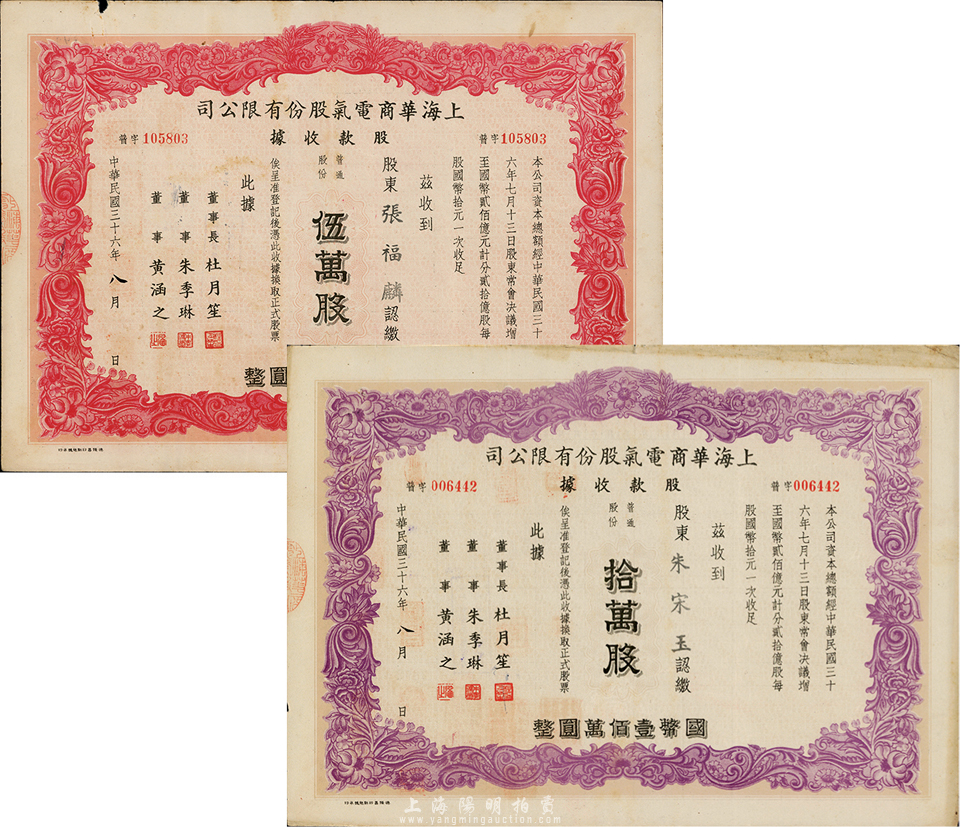 上海華商電氣股份有限公司
股款收據
普字105803
普字105803
本公司資本總額經中華民國三十
六年七月十三日股東常會决議增
至國幣貳佰億元計分貳拾億股每
股國幣拾元一次收足
茲收到
股東張福麟認繳
普通股份
伍萬股
圓整
俟呈准登記後憑此收據換取正式股票
此據
董事長杜月笙
董事朱季琳
董事黃涵之
中華民國三十六年八月 日
上海華商電氣股份有限公司
股款收據
普字006442
普字006442
本公司資本總額經中華民國三十
六年七月十三日股東常會决議增
至國幣貳佰億元計分貳拾億股每
股國幣拾元一次收足
茲收到
股東朱宋玉認繳
普通股份
拾萬股
國幣壹佰萬圓整
俟呈准登記後憑此收據換取正式股票
此據
董事長杜月笙
董事朱季琳
董事黃涵之
中華民國三十六年八月 日
上海陽明拍賣
www.yangmingauction.com